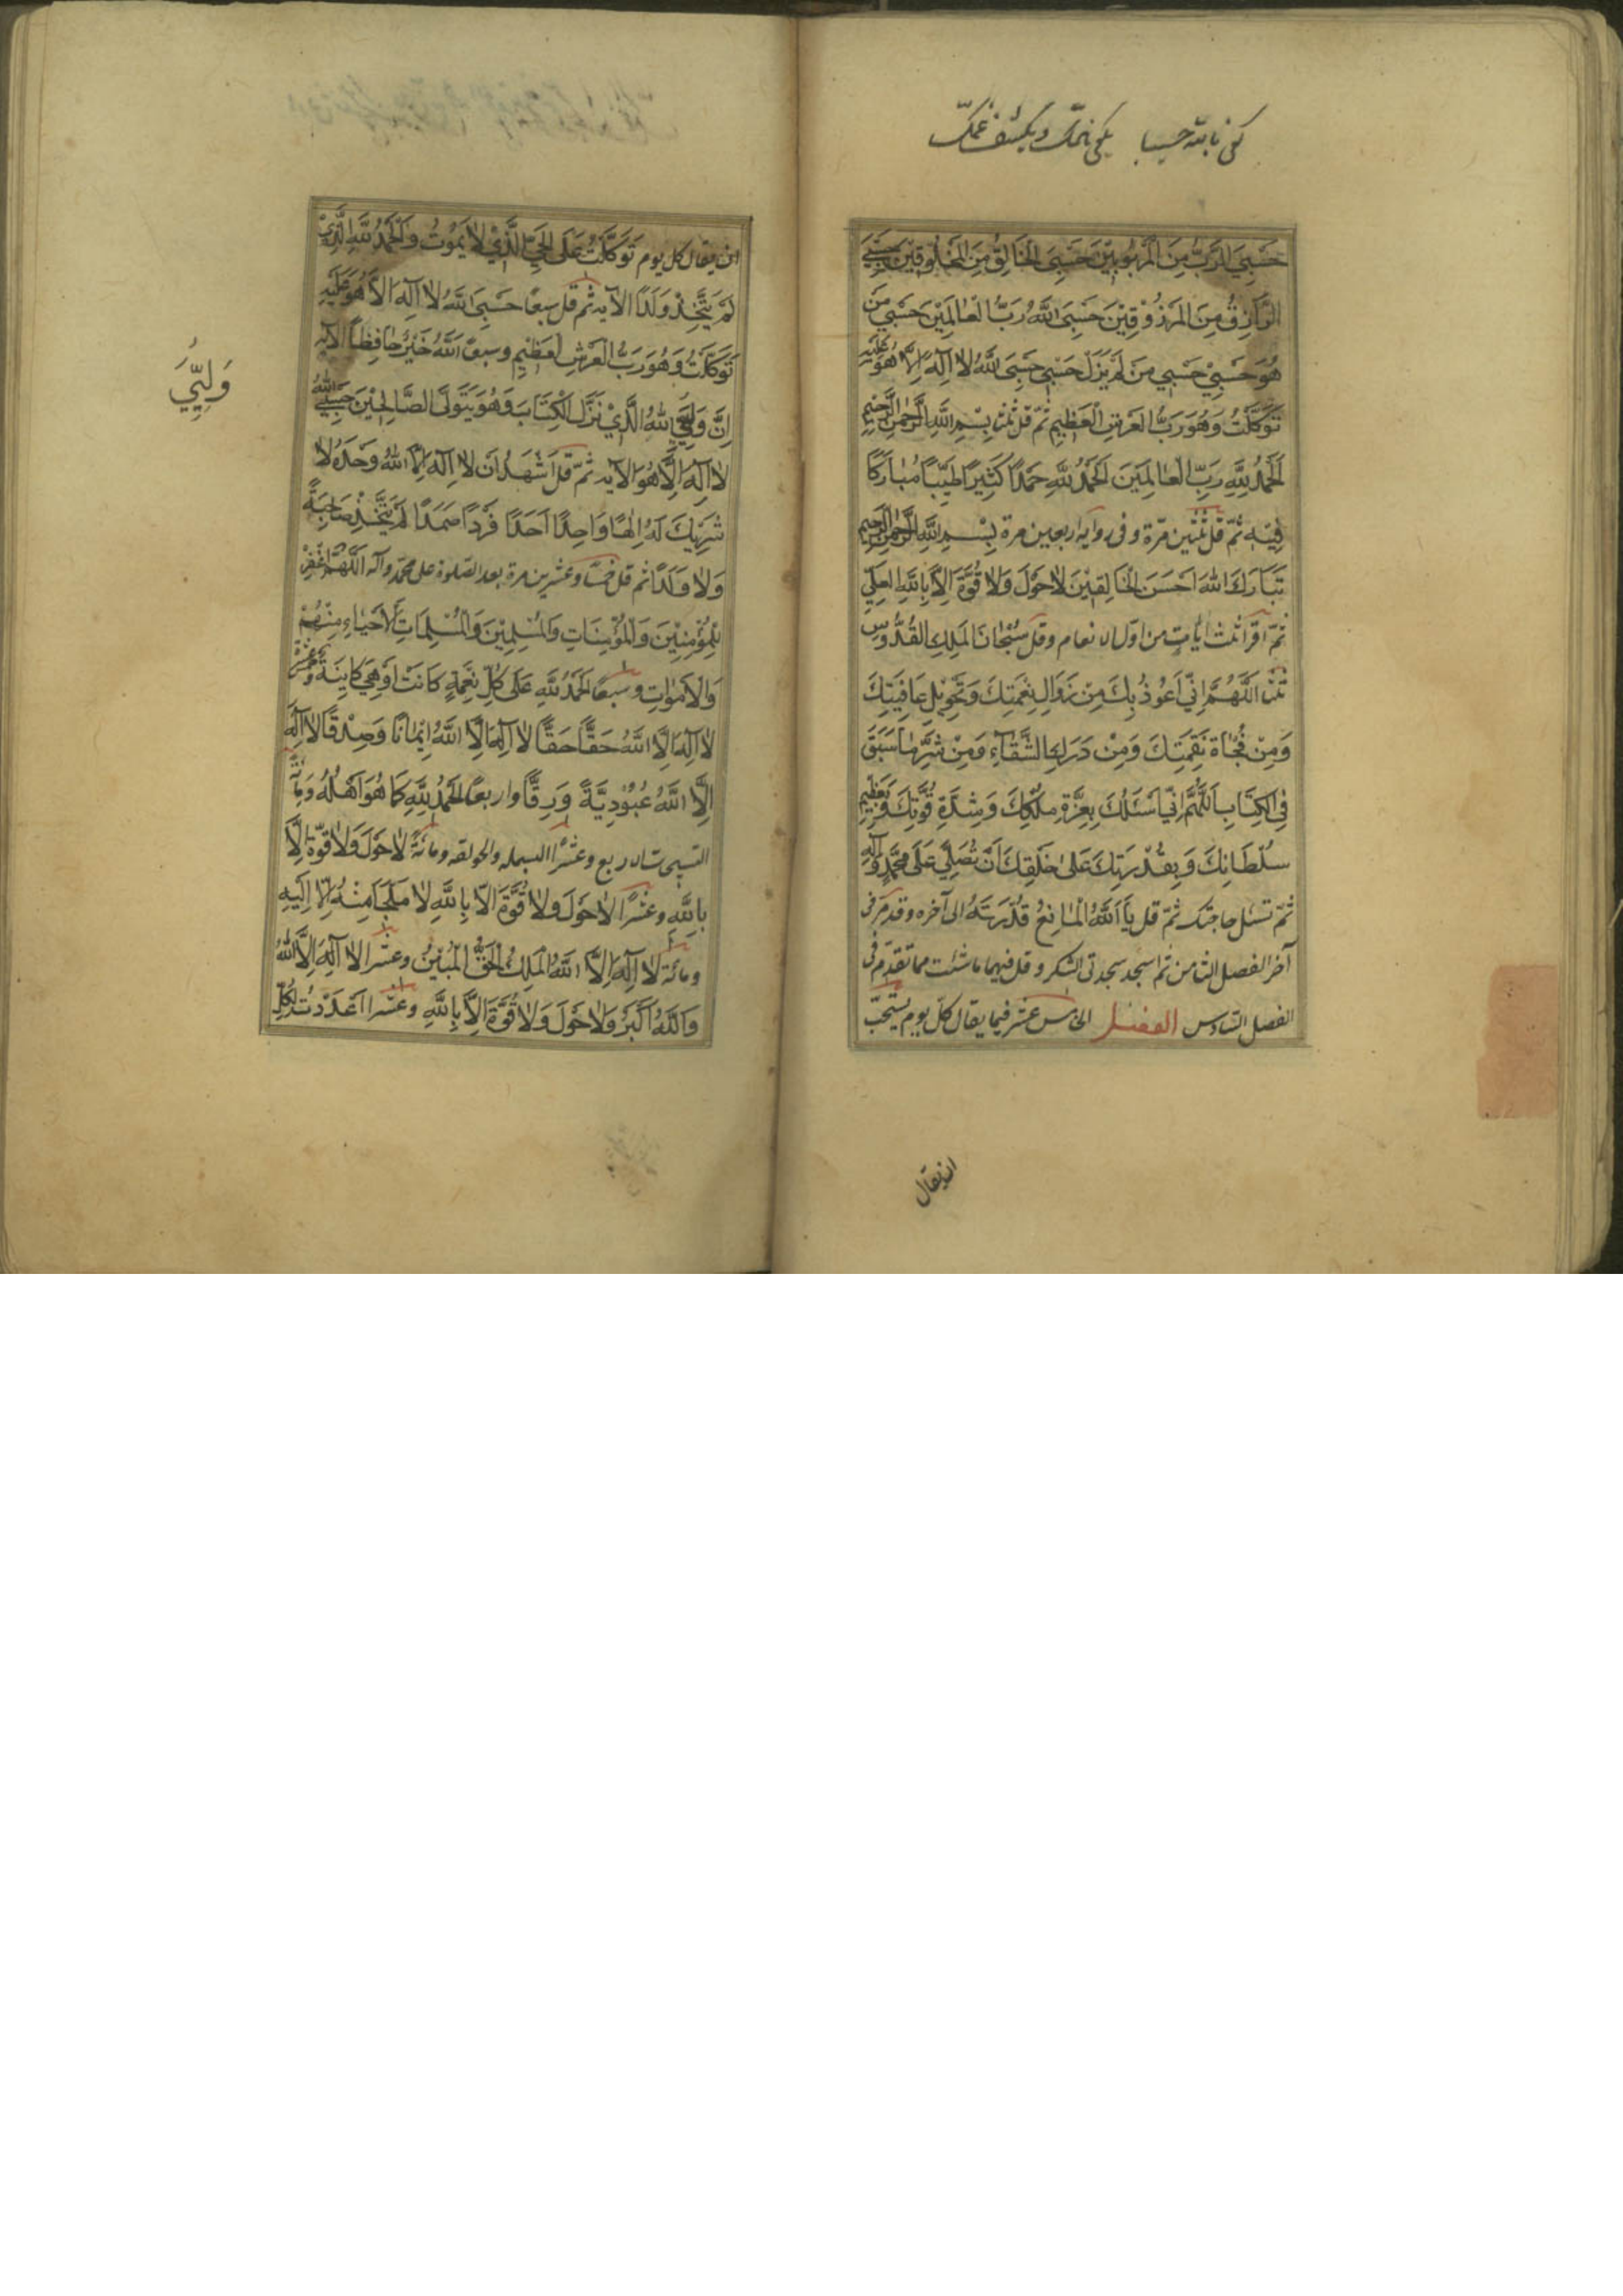 كفى بالله حسيبا يكفى همك ويكشف غمك
حَسْبِيَ الرَّبُّ مِنَ الْمَرْبُوبِيْنَ حَسْبِيَ الْخَالِقُ مِنَ الْمَخْلُوقِيْنَ حَسْبِيَ
الرَّازِقُ مِنَ الْمَرْزُوْقِيْنَ حَسْبِيَ اللَّهُ رَبُّ الْعَالَمِيْنَ حَسْبِي مَنْ
هُوَ حَسْبِيْ حَسْبِي مَنْ لَمْ يَزَلْ حَسْبِي حَسْبِيَ اللَّهُ لا اِلٰهَ اِلَّا هُوَ عَلَيْهِ
تَوَكَّلْتُ وَهُوَ رَبُّ الْعَرْشِ الْعَظِيمِ ثمّ قل ثلثا بِسْمِ اللَّهِ الرَّحْمٰنِ الرَّحِيمِ
اَلْحَمْدُ لِلَّهِ رَبِّ الْعَالَمِيْنَ اَلْحَمْدُ لِلَّهِ حَمْدًا كَثِيرًا طَيِّبًا مُبَارَكًا
فِيْهِ ثمّ قل ثلثين مرّة وفى رواية اربعين مرة بِسْمِ اللَّهِ الرَّحْمٰنِ الرَّحِيمِ
تَبَارَكَ اللهُ اَحْسَنُ الْخَالِقِيْنَ لاحَوْلَ وَلا قُوَّةَ اِلَّا بِاللهِ الْعَلِيِّ
ثمّ اقرأ ثلث ايات من اوّل الانعام وقل سُبْحَانَ الْمَلِكِ الْقُدُّوسِ
ثلثا اَللَّهُمَّ اِنِّي اَعُوذُ بِكَ مِنْ زَوَالِ نِعْمَتِكَ وَتَحْوِيْلِ عَافِيَتِكَ
وَمِنْ فُجْأَةِ نَقِمَتِكَ وَمِنْ دَرَكِ الشَّقَاءِ وَمِنْ شَرِّ مَا سَبَقَ
فِي الْكِتَابِ اَللَّهُمَّ اِنِّي اَسْئَلُكَ بِعِزَّةِ مُلْكِكَ وَشِدَّةِ قُوَّتِكَ وَبِعَظِيْمِ
سُلْطَانِكَ وَبِقُدْرَتِكَ عَلَى خَلْقِكَ اَنْ تُصَلِّيَ عَلَى مُحَمَّدٍ وَآلِهِ
ثمّ تسئل حاجتك ثمّ قل يَا اَللَّهُ الْمَانِعُ قُدْرَتَهُ الى آخره وقد مرّ فى
آخر الفصل الثامن ثم اسجد سجدتى الشكر وقل فيهما ما شئت مما تقدّم فى
الفصل السادس الفصل الخامس عشر فيما يقال كل يوم يستحبّ
ان يقال
ان يقال كل يوم تَوَكَّلْتُ عَلَى الْحَيِّ الَّذِيْ لا يَمُوْتُ وَالْحَمْدُ لِلَّهِ الَّذِيْ
لَمْ يَتَّخِذْ وَلَدًا الآيه ثم قل سبعا حَسْبِيَ اللَّهُ لا اِلٰهَ اِلَّا هُوَ عَلَيْهِ
تَوَكَّلْتُ وَهُوَ رَبُّ الْعَرْشِ الْعَظِيْمِ وسبعا اَللَّهُ خَيْرٌ حَافِظًا الآيه
اِنَّ وَلِيِّيَ اللهُ الَّذِيْ نَزَّلَ الْكِتَابَ وَهُوَ يَتَوَلَّى الصَّالِحِيْنَ حَسْبِيَ اللهُ
وَلِيِّيَ
لا اِلٰهَ اِلَّا هُوَ الآيه ثمّ قل اَشْهَدُ اَنْ لا اِلٰهَ اِلَّا اللهُ وَحْدَهُ لا
شَرِيْكَ لَهُ اِلٰهًا وَاحِدًا اَحَدًا فَرْدًا صَمَدًا لَمْ يَتَّخِذْ صَاحِبَةً
وَلا وَلَدًا ثم قل خمسًا وعشرين مرة بعد الصّلوة على محمّد وآله اَللَّهُمَّ اغْفِرْ
لِلْمُؤْمِنِيْنَ وَالْمُؤْمِنَاتِ وَالْمُسْلِمِيْنَ وَالْمُسْلِمَاتِ الْاَحْيَاءِ مِنْهُمْ
وَالْاَمْوَاتِ وسبعًا اَلْحَمْدُ لِلَّهِ عَلَى كُلِّ نِعْمَةٍ كَانَتْ اَوْ هِيَ كَائِنَةٌ وخمس عشرة
لا اِلٰهَ اِلَّا اللَّهُ حَقًّا حَقًّا لا اِلٰهَ اِلَّا اللَّهُ اِيْمَانًا وَصِدْقًا لا اِلٰهَ
اِلَّا اللَّهُ عُبُوْدِيَّةً وَرِقًّا واربعا اَلْحَمْدُ لِلَّهِ كَمَا هُوَ اَهْلُهُ ومائة
التسبيحات الاربع وعشرًا البسمله والحولقه ومائةً لا حَوْلَ وَلا قُوَّةَ اِلَّا
بِاللهِ وعشرًا لا حَوْلَ وَلا قُوَّةَ اِلَّا بِاللَّهِ لا مَلْجَأَ مِنْهُ اِلَّا اِلَيْهِ
ومائة لا اِلٰهَ اِلَّا اللَّهُ الْمَلِكُ الْحَقُّ الْمُبِيْنُ وعشرا لا اِلٰهَ اِلَّا اللهُ
وَاللَّهُ اَكْبَرُ وَلا حَوْلَ وَلا قُوَّةَ اِلَّا بِاللَّهِ وعشرا اَعْدَدْتُ لِكُلِّ